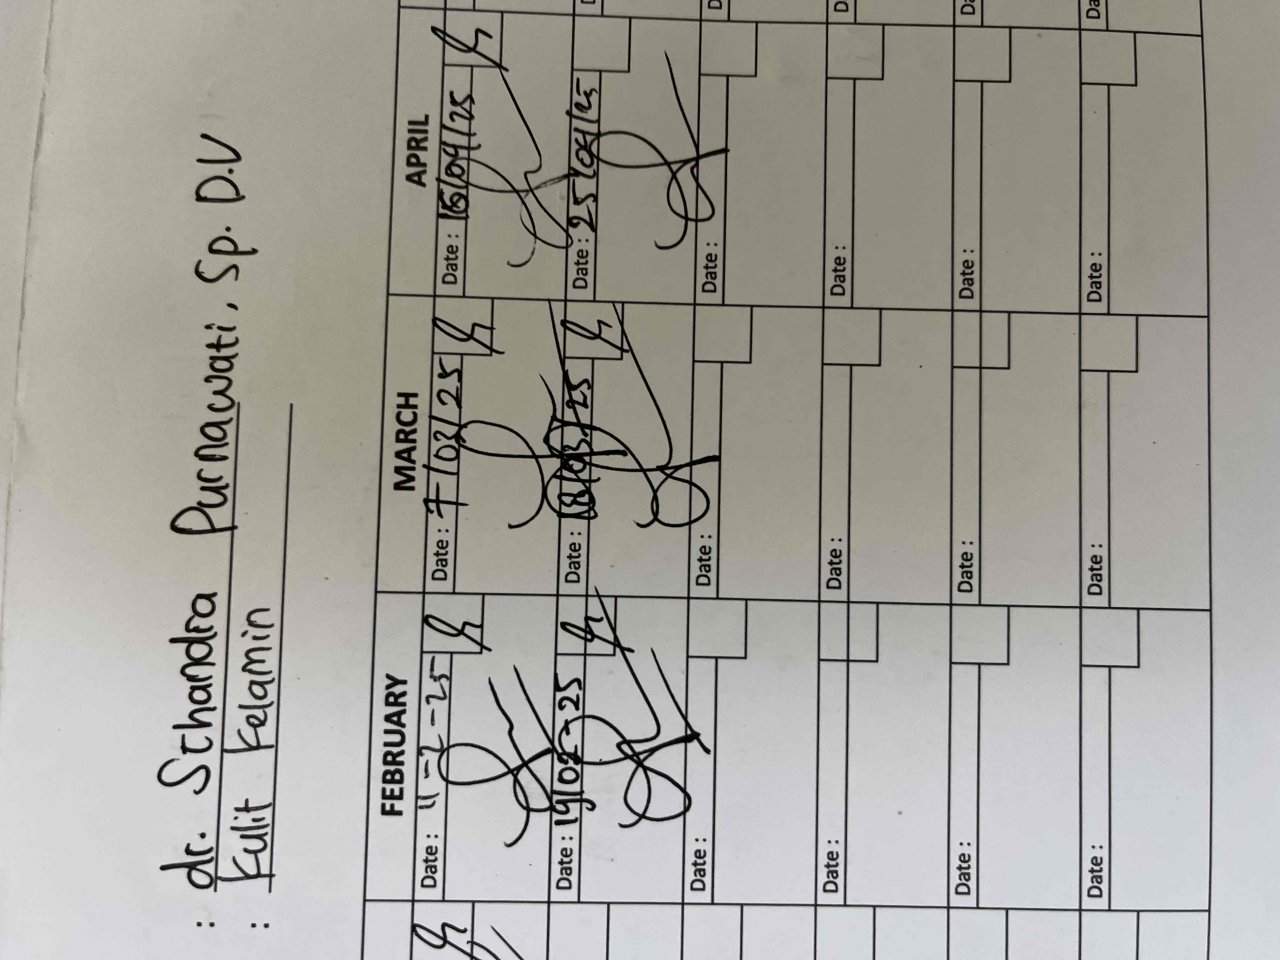 : dr. Sthandra Purnawati, Sp. D.V
: Kulit Kelamin
FEBRUARY MARCH APRIL
Date : 11-2-25 Date : 7/03/25 Date : 16/04/25
Date : 19/02-25 Date : 18/03/25 Date : 25/04/25
Date : Date : Date :
Date : Date : Date :
Date : Date : Date :
Date : Date : Date :